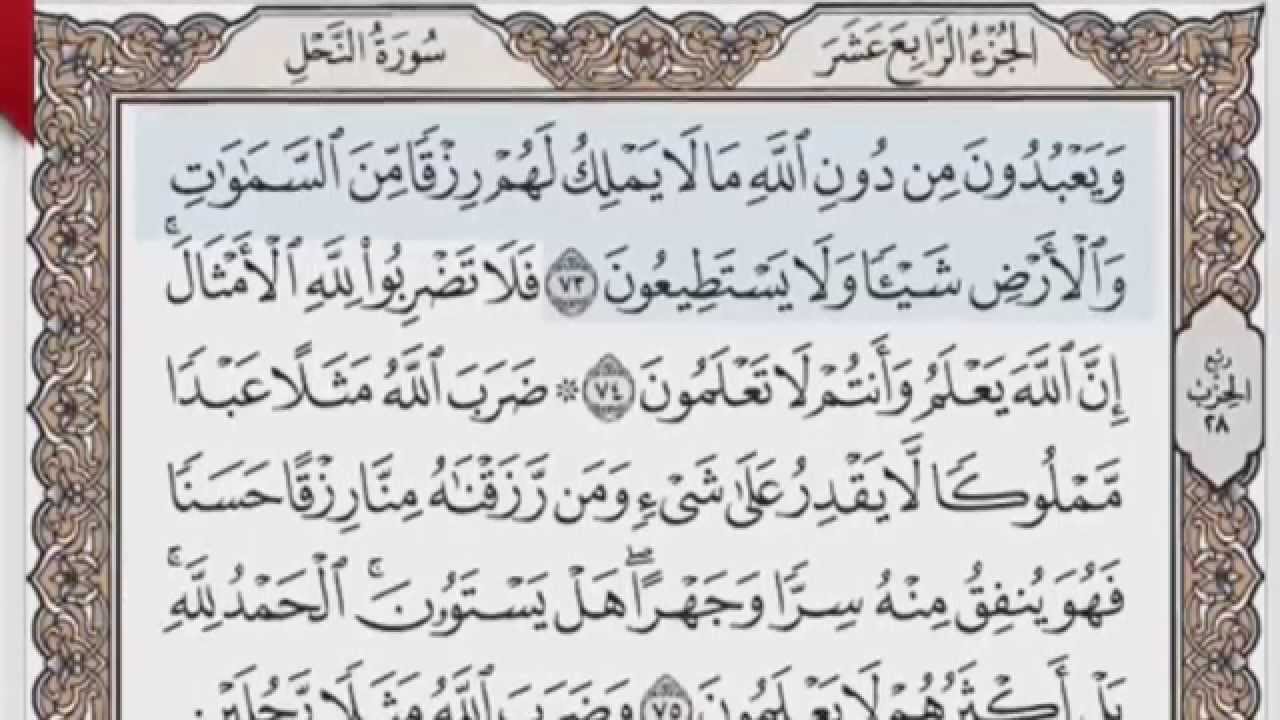 الجُزْءُ الرَّابِعَ عَشَرَ
سُورَةُ النَّحْلِ
وَيَعْبُدُونَ مِن دُونِ ٱللَّهِ مَا لَا يَمْلِكُ لَهُمْ رِزْقًا مِّنَ ٱلسَّمَٰوَٰتِ
وَٱلْأَرْضِ شَيْـًٔا وَلَا يَسْتَطِيعُونَ ٧٣ فَلَا تَضْرِبُوا۟ لِلَّهِ ٱلْأَمْثَالَ ۚ
إِنَّ ٱللَّهَ يَعْلَمُ وَأَنتُمْ لَا تَعْلَمُونَ ٧٤ * ضَرَبَ ٱللَّهُ مَثَلًا عَبْدًا
مَّمْلُوكًا لَّا يَقْدِرُ عَلَىٰ شَىْءٍ وَمَن رَّزَقْنَٰهُ مِنَّا رِزْقًا حَسَنًا
فَهُوَ يُنفِقُ مِنْهُ سِرًّا وَجَهْرًا ۖ هَلْ يَسْتَوُۥنَ ۚ ٱلْحَمْدُ لِلَّهِ ۚ
بَلْ أَكْثَرُهُمْ لَا يَعْلَمُونَ ٧٥ وَضَرَبَ ٱللَّهُ مَثَلًا رَّجُلَيْنِ
ربع
الحزب
٢٨